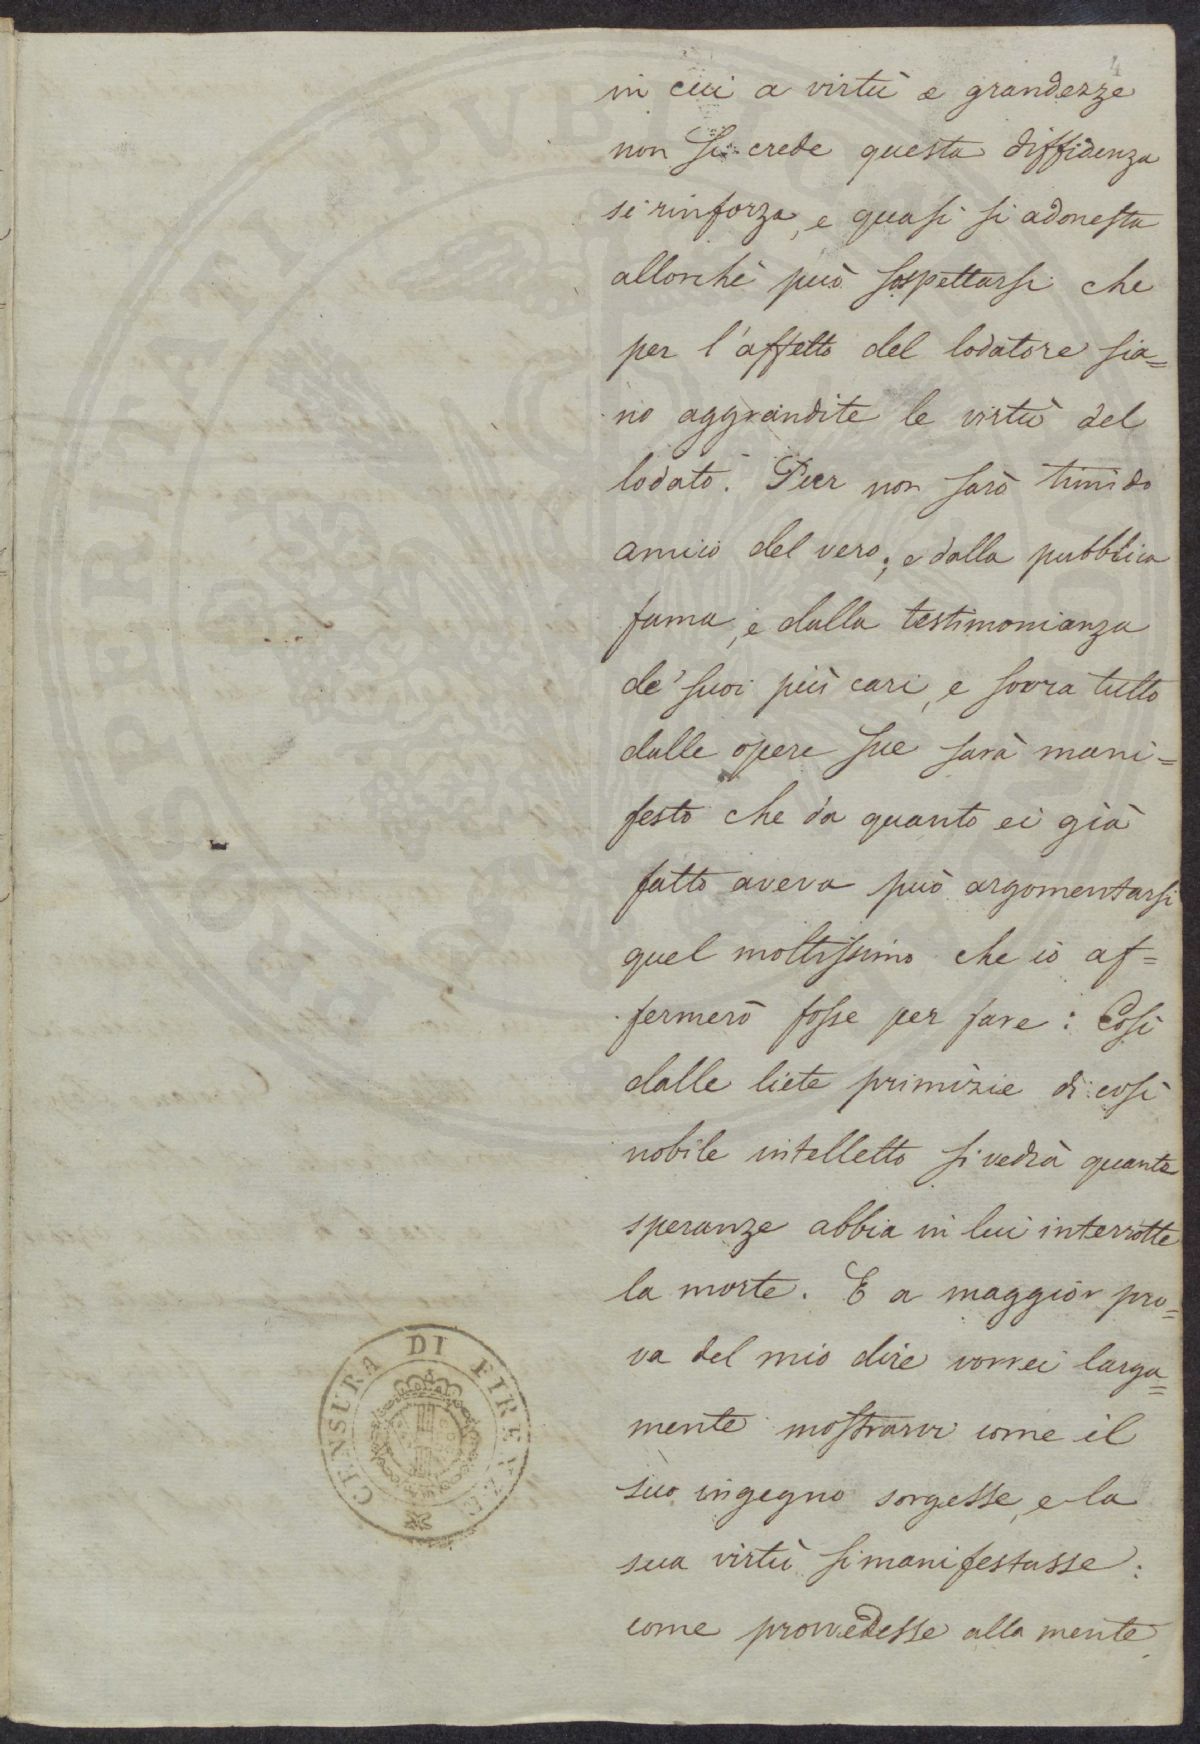 4
in cui a virtù e grandezze
non si crede questa diffidenza
si rinforza, e quasi si adonesta
allorchè può sospettarsi che
per l'affetto del lodatore sia=
no aggrandite le virtù del
lodato. Pur non sarò timido
amico del vero; e dalla pubblica
fama, e dalla testimonianza
de' suoi più cari, e sovra tutto
dalle opere sue sarà mani=
festo che da quanto ei già
fatto aveva può argomentarsi
quel moltissimo che io af=
fermerò fosse per fare: Così
dalle liete primizie di così
nobile intelletto si vedrà quante
speranze abbia in lui interrotte
la morte. E a maggior pro=
va del mio dire vorrei larga=
mente mostrarvi come il
suo ingegno sorgesse, e la
sua virtù si manifestasse:
come provvedesse alla mente
CENSURA DI FIRENZE